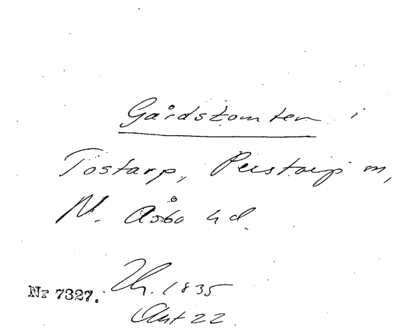 Gårdstomten i
Tostarp, Perstorp m,
N. Åsbo hd.
Nr 7327. 1835
22